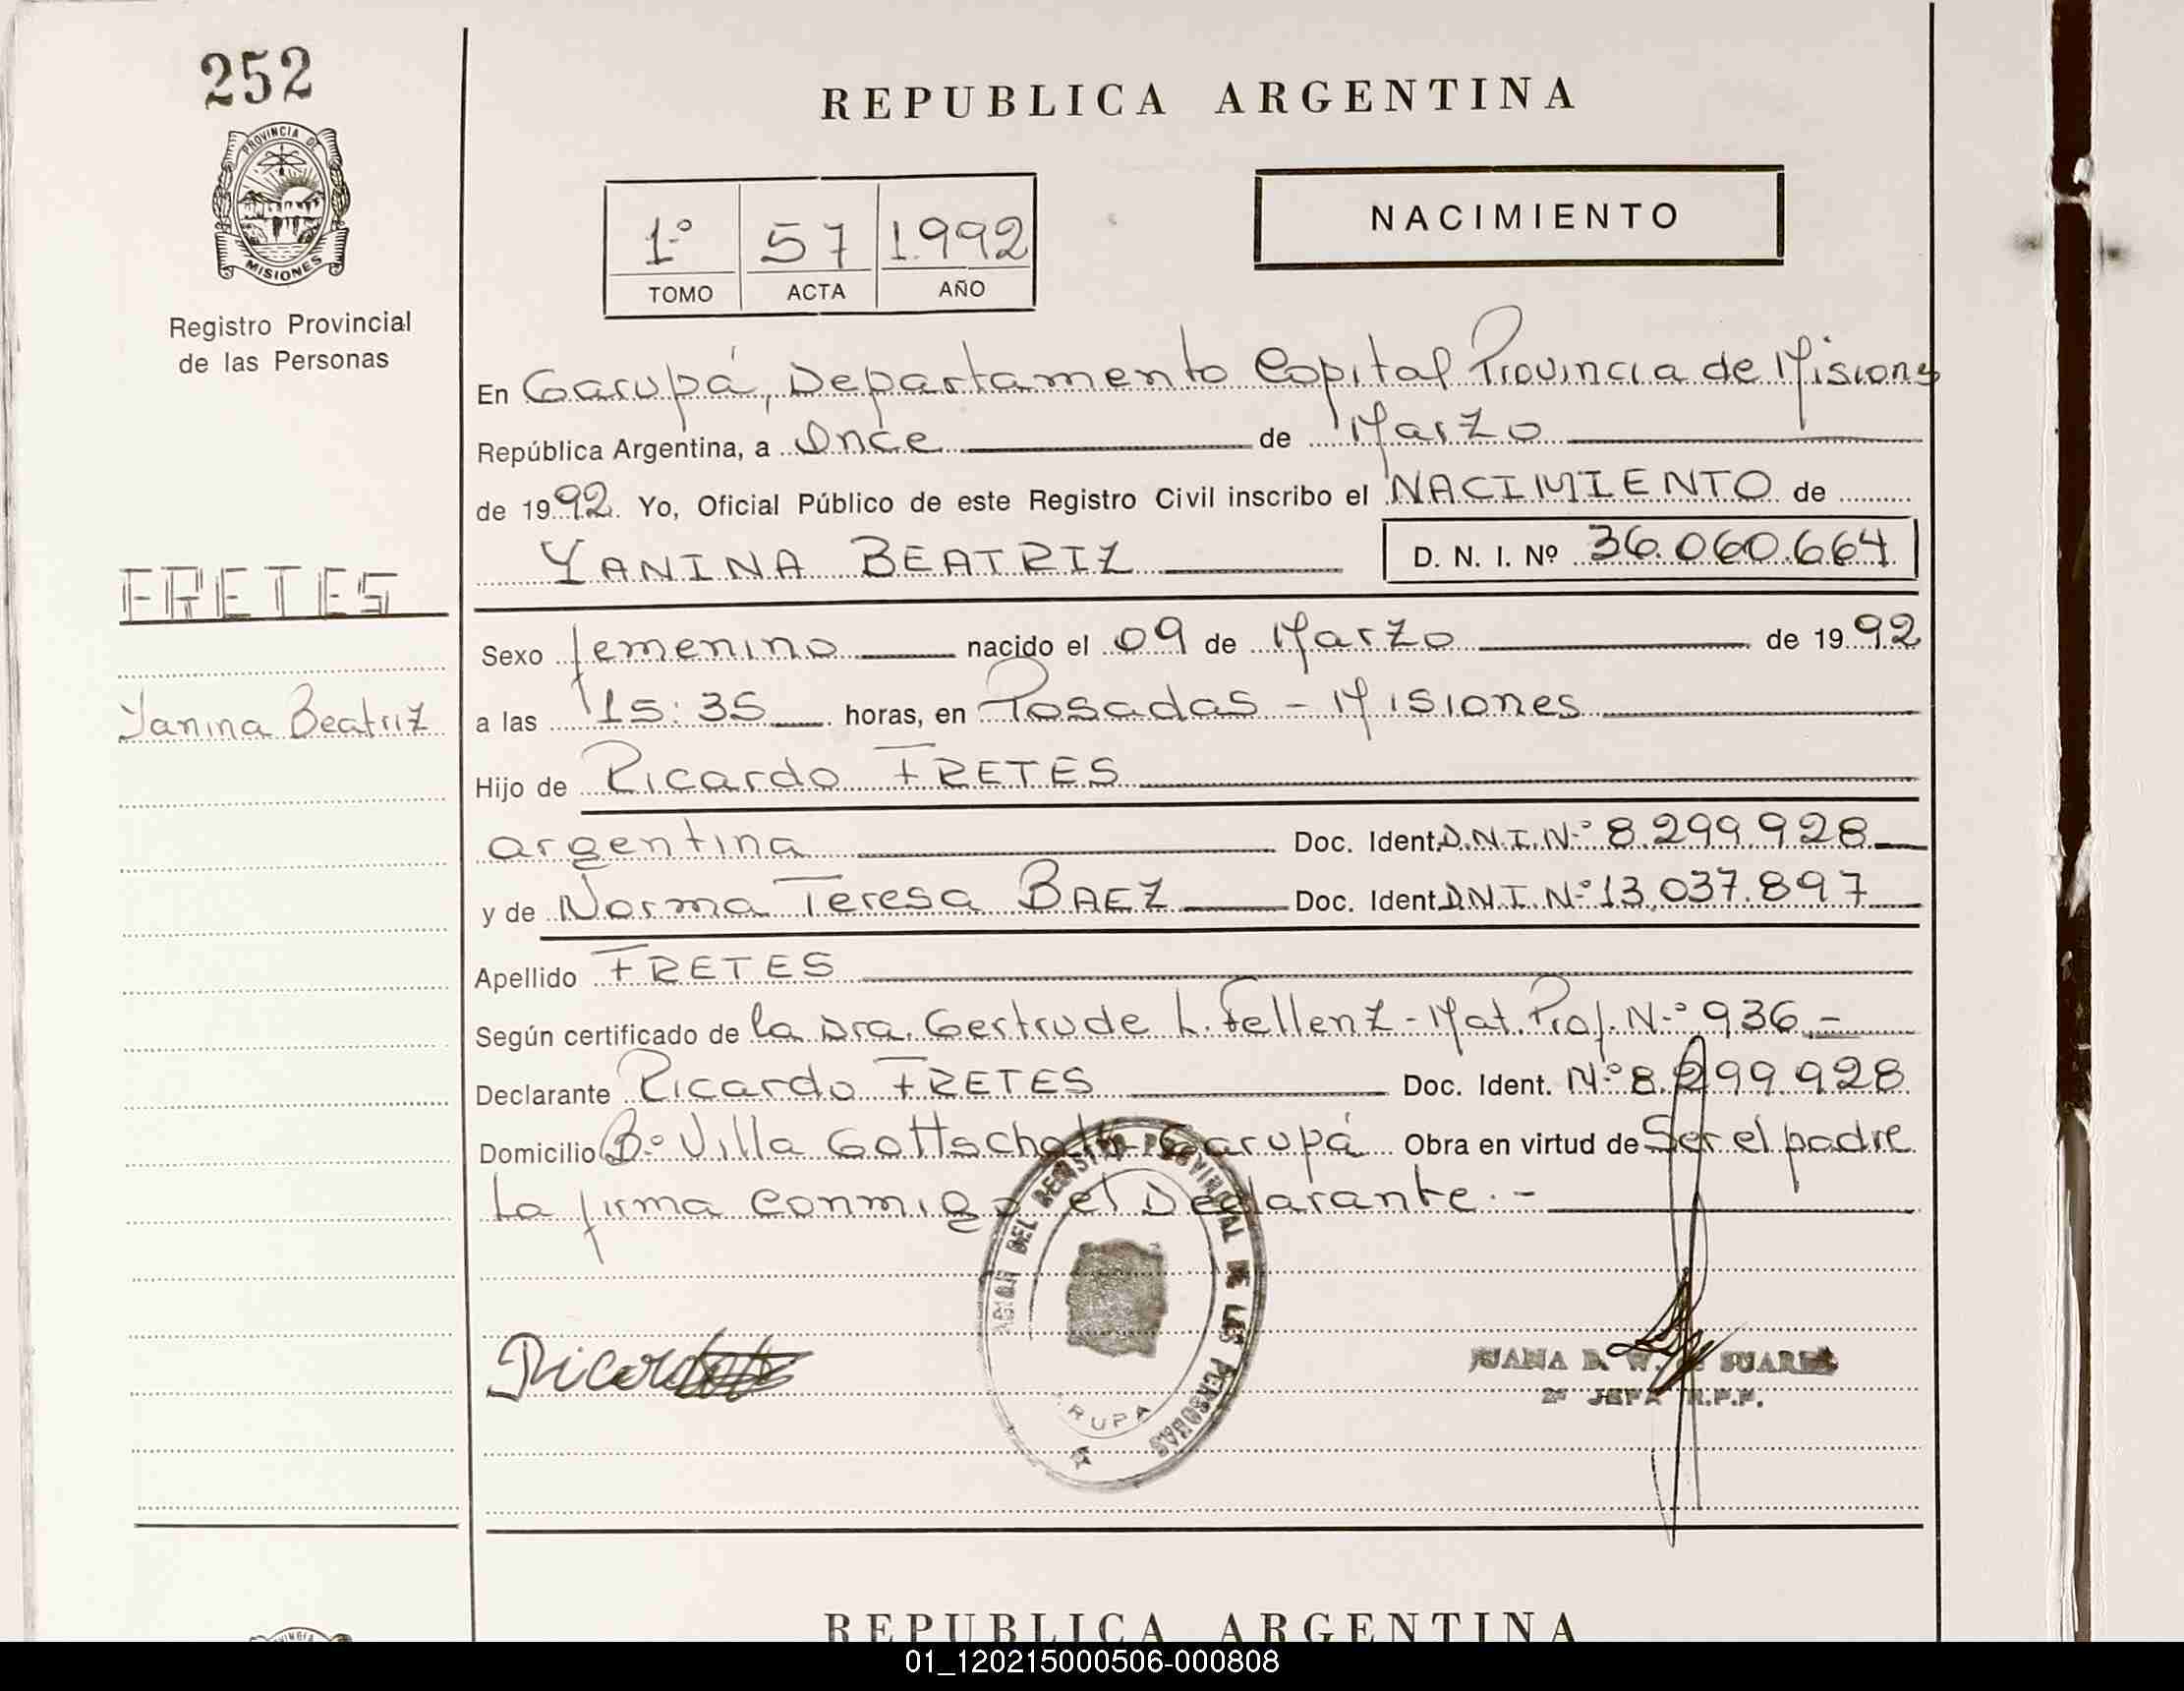 252
PROVINCIA DE
MISIONES
Registro Provincial
de las Personas
FRETES
Yanina Beatriz
REPUBLICA ARGENTINA
1º 57 1.992
TOMO ACTA AÑO
NACIMIENTO
En Garupá, Departamento Capital Provincia de Misiones
República Argentina, a Once de Marzo
de 1992. Yo, Oficial Público de este Registro Civil inscribo el NACIMIENTO de
YANINA BEATRIZ D. N. I. Nº 36.060.664
Sexo femenino nacido el 09 de Marzo de 1992
a las 15:35 horas, en Posadas - Misiones
Hijo de Ricardo FRETES
argentina Doc. Ident. D.N.I. Nº 8.299.928
y de Norma Teresa BAEZ Doc. Ident D.N.I. Nº 13.037.897
Apellido FRETES
Según certificado de la Dra. Gertrude L. Fellenz - Mat. Prof. Nº 936.-
Declarante Ricardo FRETES Doc. Ident. Nº 8.299.928
Domicilio Bº Villa Gottschalk - Garupá Obra en virtud de Ser el padre
La firma conmigo el Declarante.-
DEL REGISTRO PROVINCIAL DE LAS PERSONAS
Ricardo
JUANA D. W. SUAREZ
2º JEFA R.P.P.
REPUBLICA ARGENTINA
01_120215000506-000808